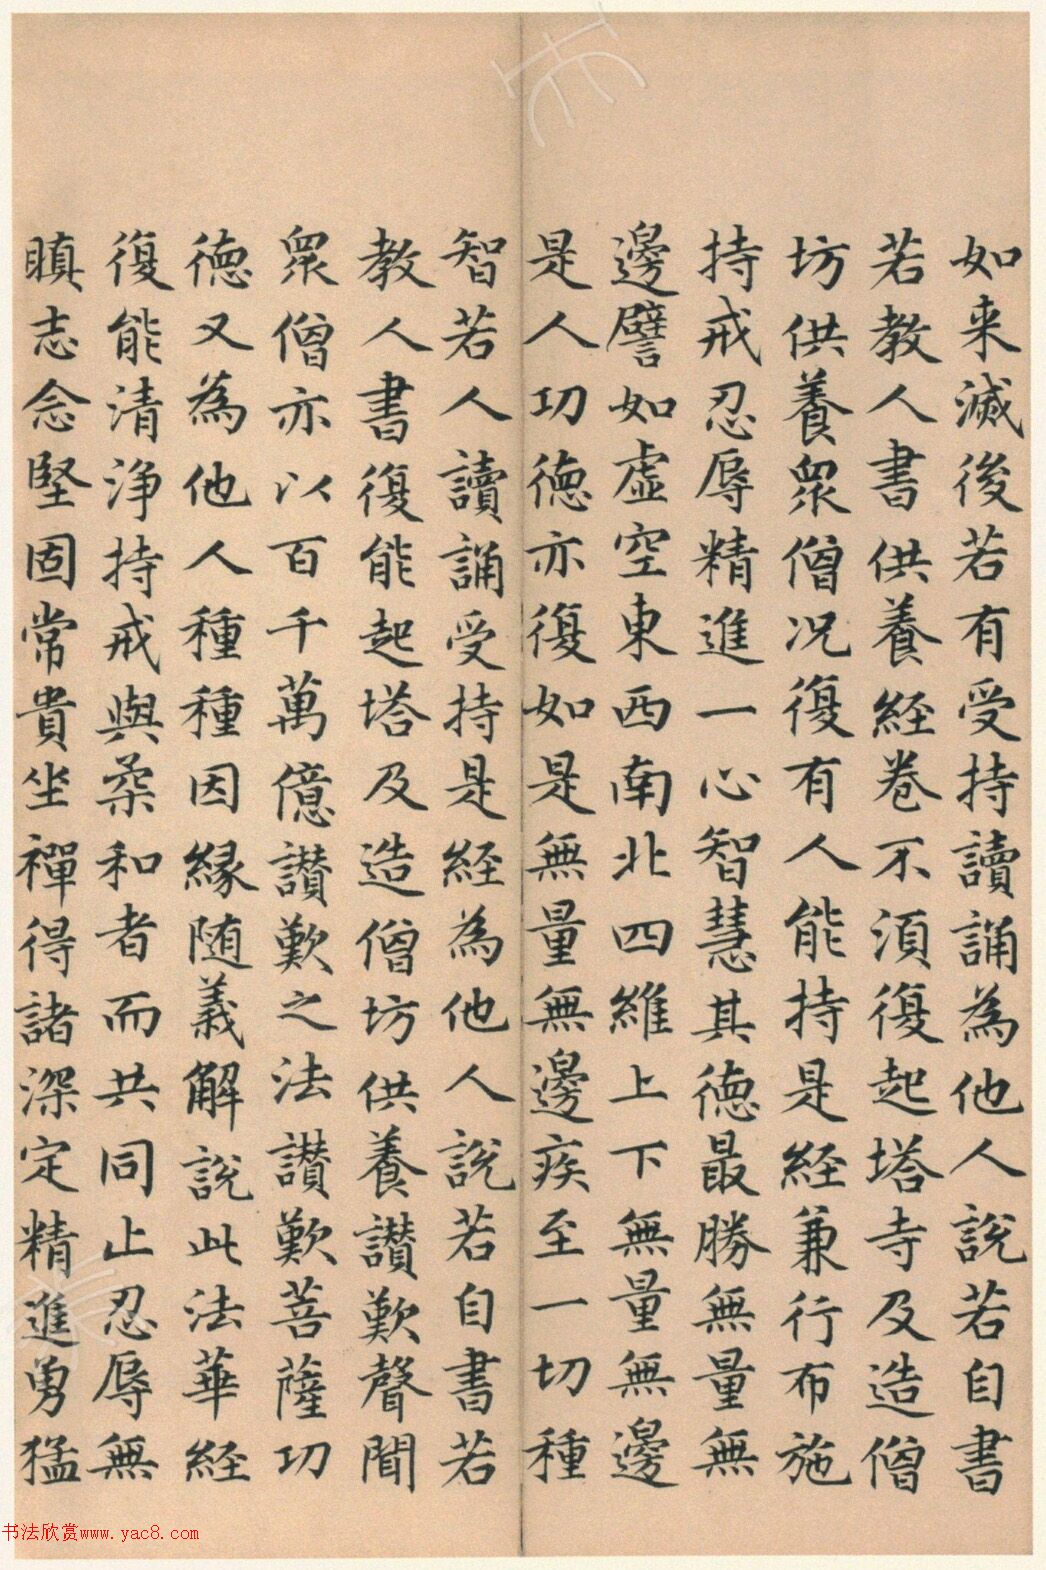 如来滅後若有受持讀誦為他人說若自書
若教人書供養経卷不須復起塔寺及造僧
坊供養衆僧况復有人能持是経兼行布施
持戒忍辱精進一心智慧其德最勝無量無
邊譬如虛空東西南北四維上下無量無邊
是人功德亦復如是無量無邊疾至一切種
智若人讀誦受持是経為他人說若自書若
教人書復能起塔及造僧坊供養讃歎聲聞
衆僧亦以百千萬億讃歎之法讃歎菩薩功
德又為他人種種因緣随義解說此法華経
復能清淨持戒與柔和者而共同止忍辱無
瞋志念堅固常貴坐禪得諸深定精進勇猛
书法欣赏www.yac8.com